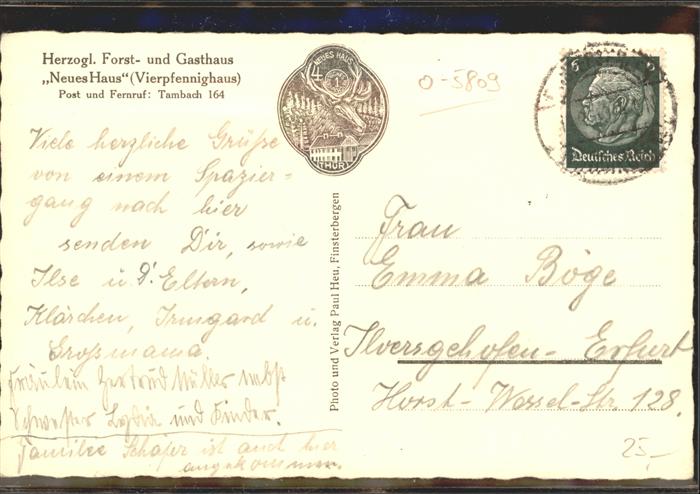 Herzogl. Forst- und Gasthaus
„Neues Haus“ (Vierpfennighaus)
Post und Fernruf: Tambach 164
NEUES HAUS
4
1
THÜR
0-5809
6 6
Deutsches Reich
Viele herzliche Grüße
von einem Spazier=
gang nach hier
senden Dir, sowie
Ilse u. d. Eltern,
Klärchen, Irmgard u.
Großmama.
Fräulein Gertrud Müller nebst
Schwester Lydia und Kinder.
Familie Schäfer ist auch hier
angekommen.
Photo und Verlag Paul Heu, Finsterbergen
Frau
Emma Böge
Ilversgehofen-Erfurt
Horst-Wessel-Str. 128.
25,-